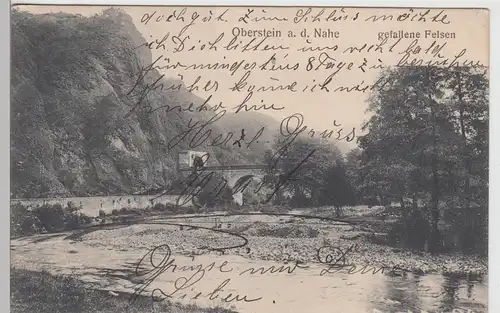 doch gut. Zum Schluss möchte
Oberstein a. d. Nahe
gefallene Felsen
ich Dich bitten uns recht bald
für mindestens 8 Tage zu besuchen
früher kann ich nicht
mehr hin
Herzl. Gruss
Grüsse mir Deine
Lieben.